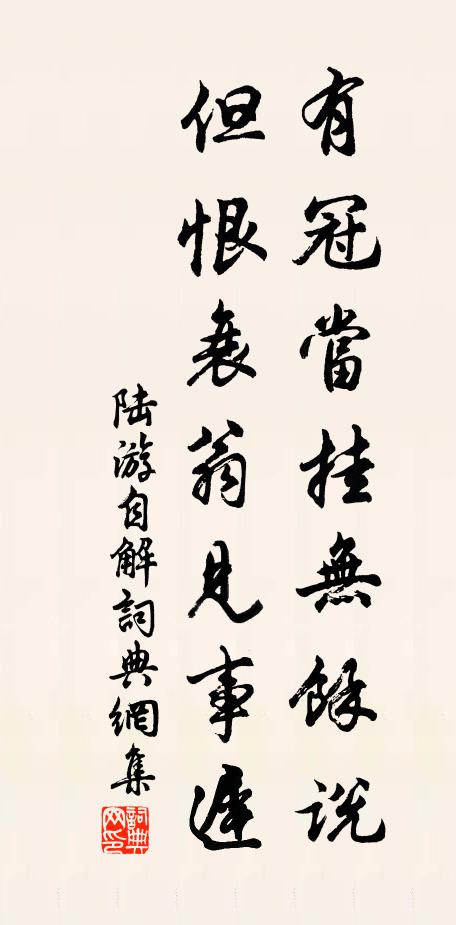 有冠當挂無餘説
但恨衰翁見事遲
陆游自解詞典網集
詞典网印